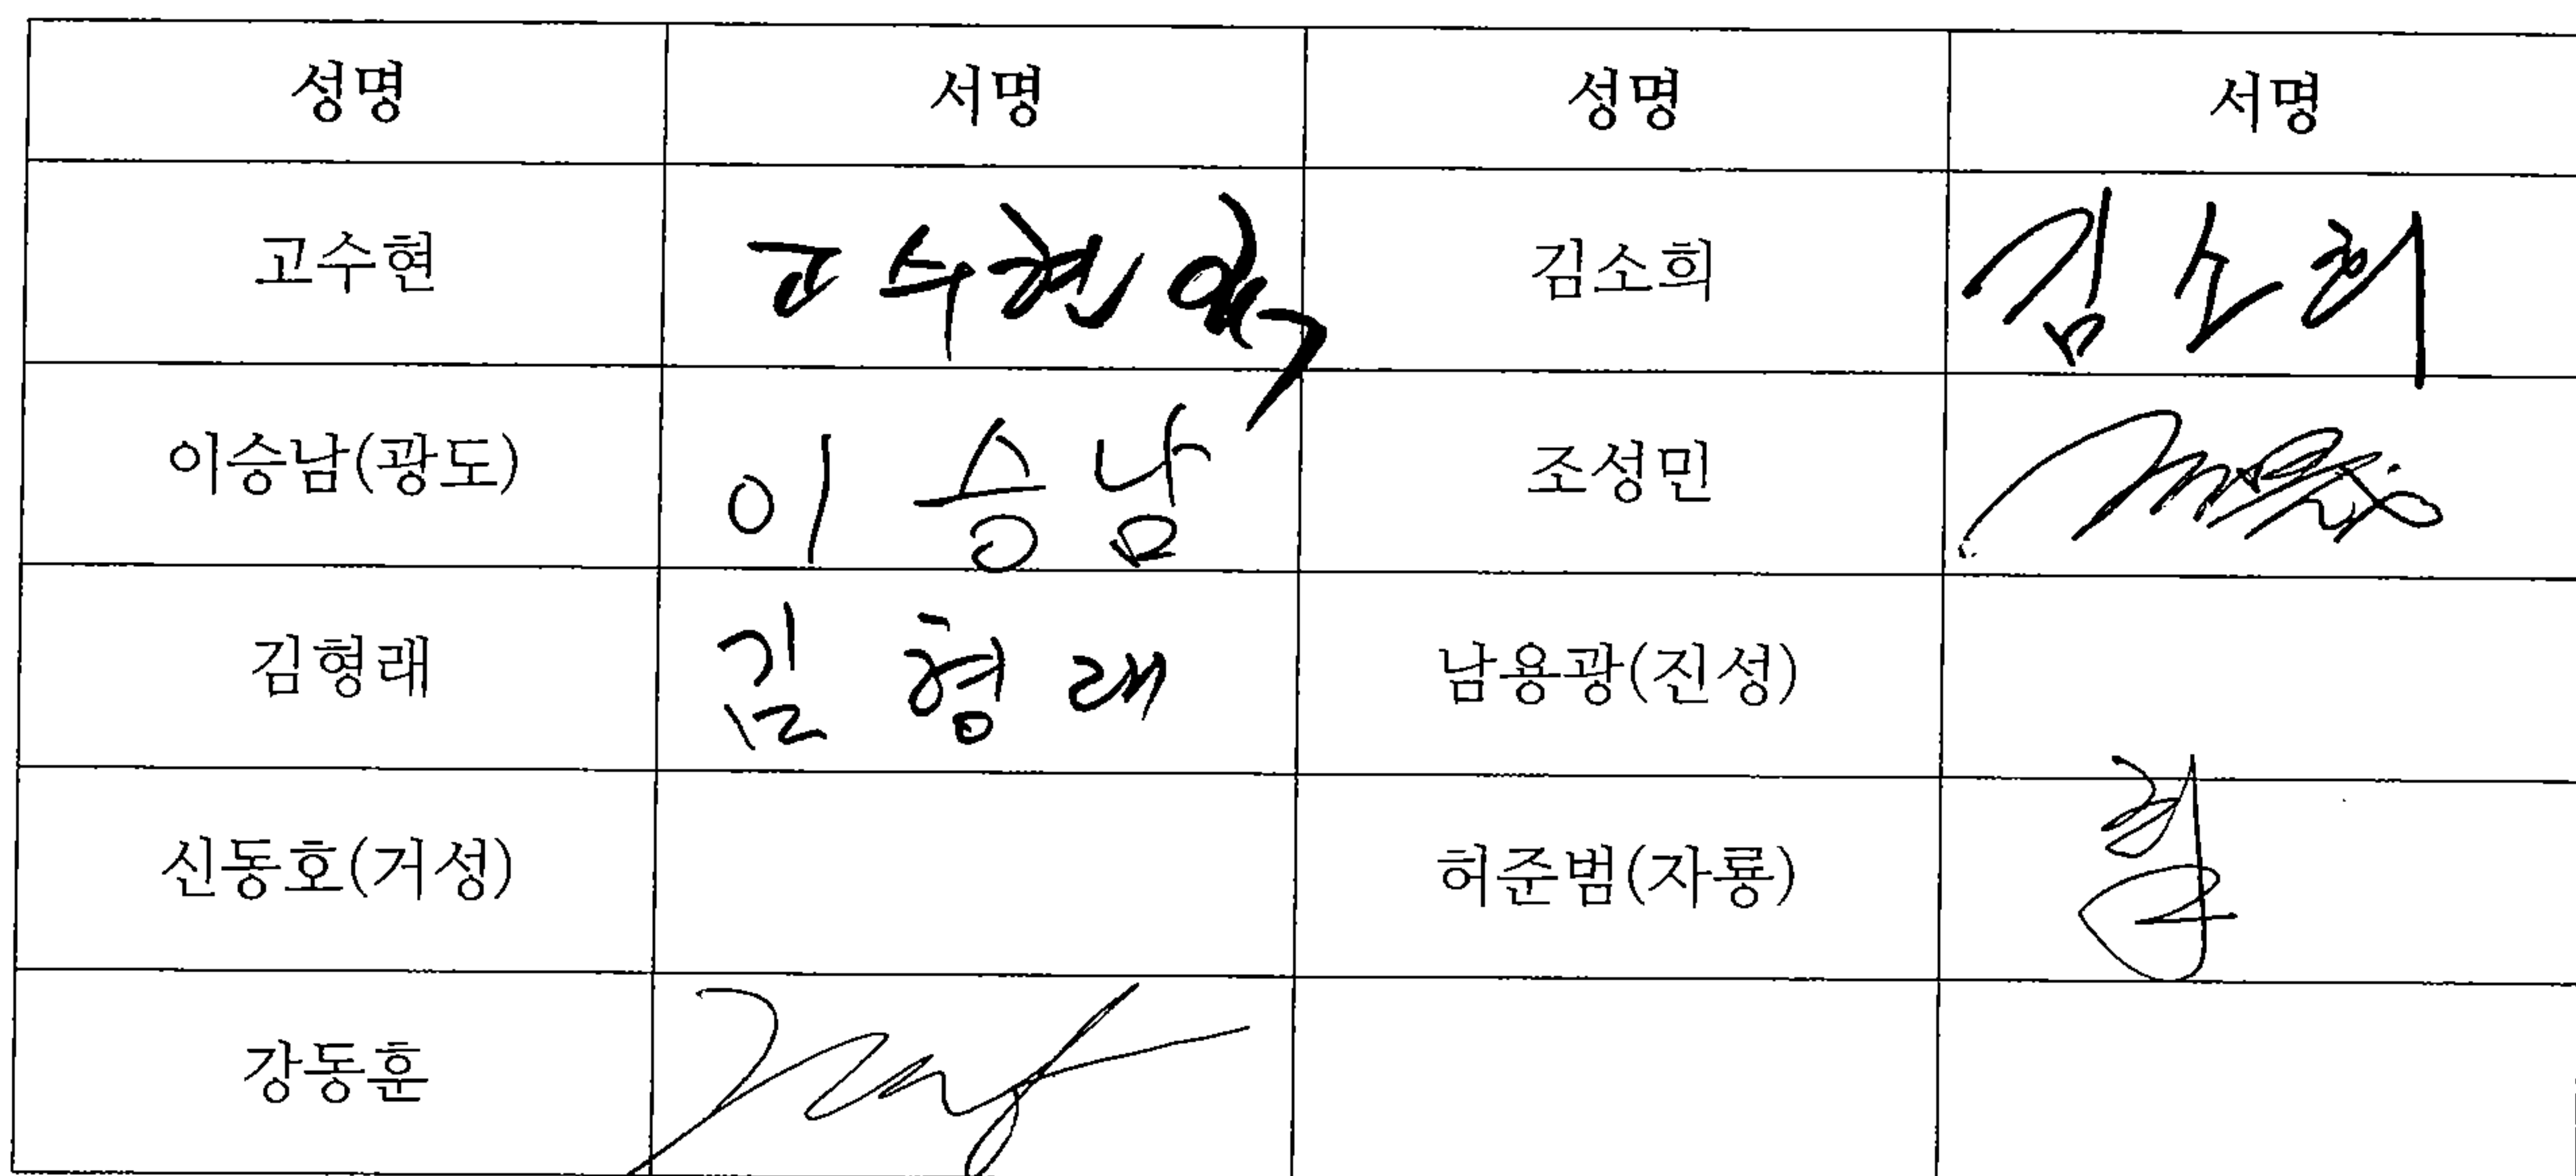 성명 서명 성명 서명
고수현 고수현 김소희 김소희
이승남(광도) 이승남 조성민
김형래 김형래 남용광(진성)
신동호(거성) 허준범(자룡)
강동훈